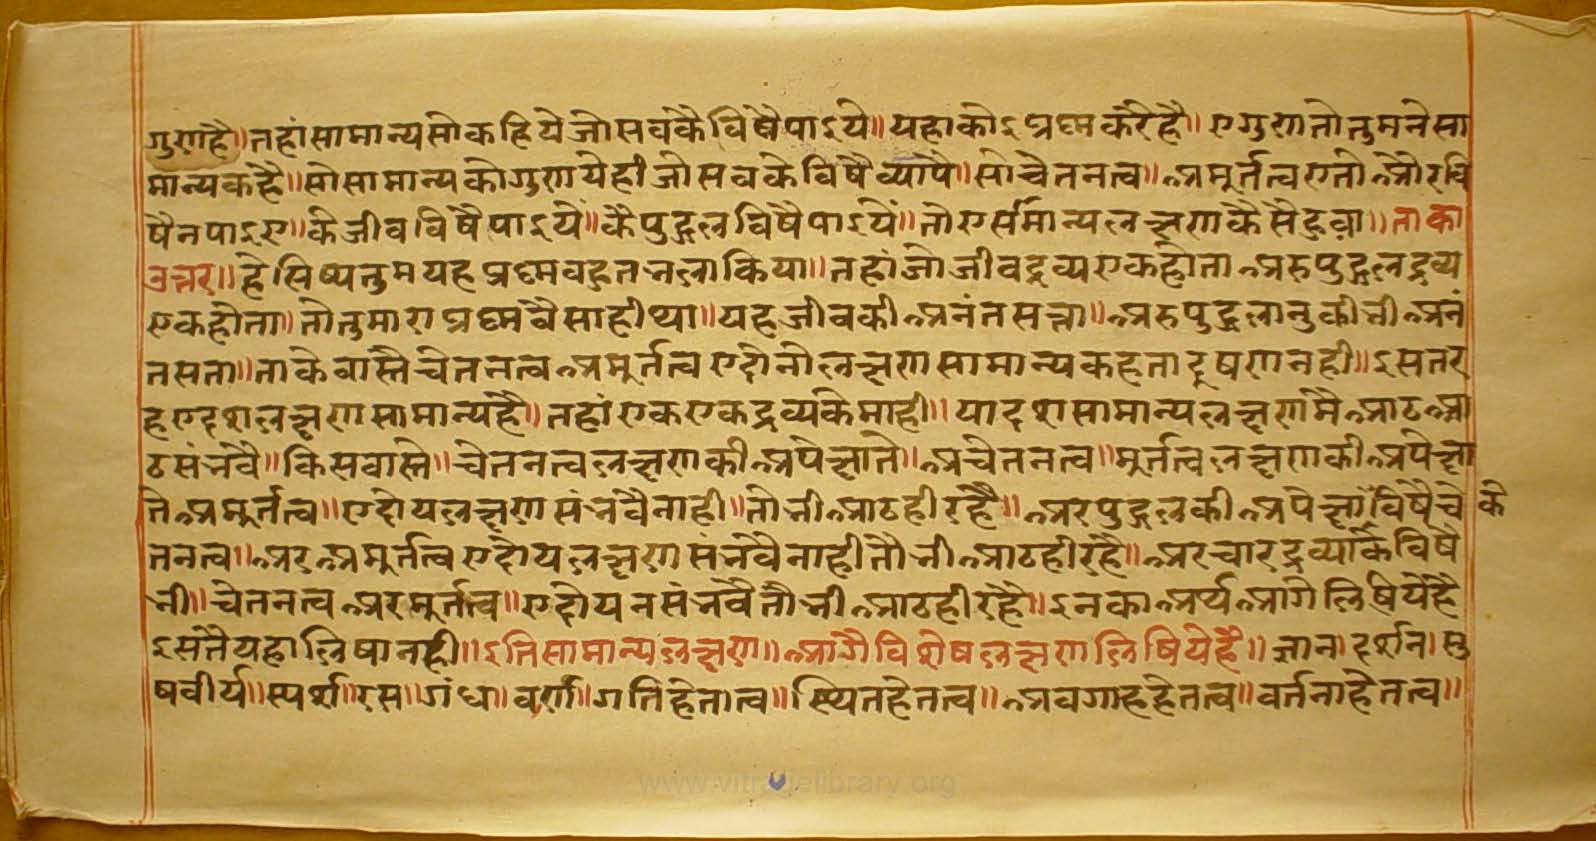 गुणहै॥तहांसामान्यसोकहियेजोसवकैविषैपाइये॥यहाकोइप्रश्नकरैहै॥एगुणतोतुमनेसा
मान्यकहै॥सोसामान्यकोगुणयेहीजोसवकेविषैव्यापै॥सोचेतनत्व॥अमूर्तत्वएतोओरवि
षैनपाइए॥कैजीवविषैपाइयें॥कैपुद्गलविषैपाइयें॥तोएसामान्यलक्षणकैसैहुवा॥ताका
उत्तर॥हेसिष्यतुमयहप्रश्नवहुतभलाकिया॥तहांजोजीवद्रव्यएकहोताअरुपुद्गलद्रव्य
एकहोता॥तौतुमाराप्रश्नवैसाहीथा॥यहजीवकीअनंतसत्ता॥अरुपुद्गलानुकीभीअनं
तसता॥ताकेवास्तैचेतनत्वअमूर्तत्वएदोनोलक्षणसामान्यकहतादूषणनही॥इसतर
हएदशलक्षणसामान्यहै॥तहांएकएकद्रव्यकेमाही॥यादशसामान्यलक्षणमैआठआ
ठसंभवै॥किसवास्ते॥चेतनत्वलक्षणकीअपेक्षाते॥अचेतनत्व॥मूर्तत्वलक्षणकीअपेक्षा
तेअमूर्तत्व॥एदोयलक्षणसंभवैनाही॥तौभीआठहीरहै॥अरपुद्गलकीअपेक्षाविषैचे के
तनत्व॥अरअमूर्तत्वएदोयलक्षणसंभवैनाहीतौभीआठहीरहै॥अरचारद्रव्याकेविषै
भी॥चेतनत्वअरमूर्तत्व॥एदोयनसंभवैतौभीआठहीरहै॥इनकाअर्थआगेलिषियेहै
इसतैयहालिषानही॥इतिसामान्यलक्षण॥आगैविशेषलक्षणलिषियेहै॥ज्ञान।दर्शन।सु
षवीर्य॥स्पर्श॥रस॥गंध॥वर्ण॥गतिहेतात्व॥स्थितहेतत्व॥अवगाहहेतत्व॥वर्तनाहेतत्व॥
www.vitragelibrary.org